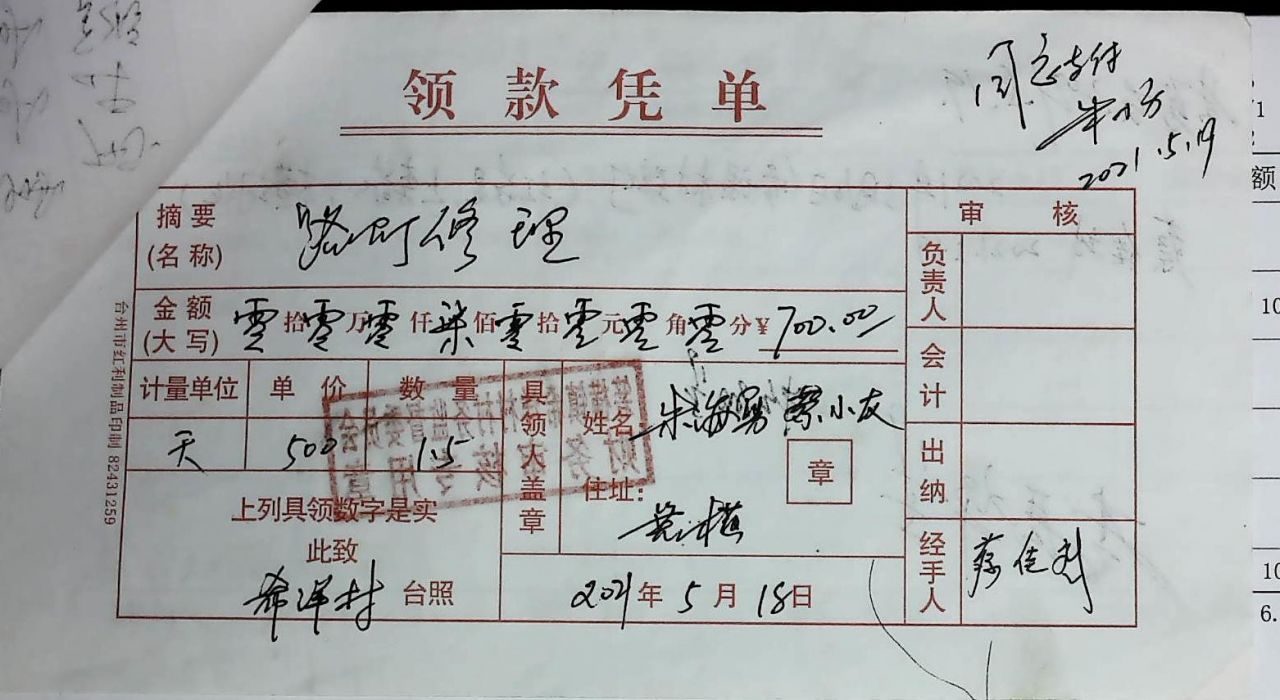 领款凭单
同意支付
2021.5.19
摘要
(名称)
路灯修理
审核
金额
(大写)
零拾零万零仟柒佰零拾零元零角零分￥700.00
计量单位 单价 数量
天 500 1.5
上列具领数字是实
此致
希洋村 台照
具领人盖章
姓名: 朱海勇 蔡小友
章
住址:
2021年5月18日
负责人
会计
出纳
经手人
蔡佳利
台州市红利制品印制 82431259
财务审核专用章
额